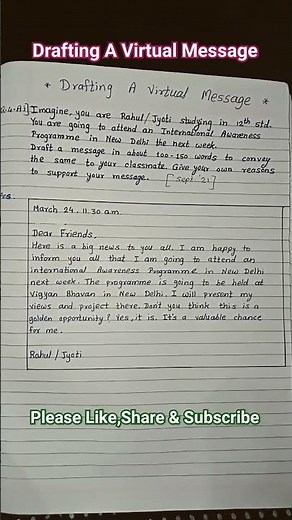 Drafting A Virtual Message
* Drafting A Virtual Message *
Imagine, you are Rahul/Jyoti studying in 12th std.
You are going to attend an International Awareness
Programme in New Delhi the next week.
Draft a message in about 100-150 words to convey
the same to your classmate. Give your own reasons
to support your message. [Sept '21]
Ans.
March 24. 11.30 a.m.
Dear Friends,
Here is a big news to you all. I am happy to
inform you all that I am going to attend an
international Awareness Programme in New Delhi
next week. The programme is going to be held at
Vigyan Bhavan in New Delhi. I will present my
views and project there. Don't you think this is a
golden opportunity? Yes, it is. It's a valuable chance
for me.
Rahul / Jyoti
Please Like,Share & Subscribe